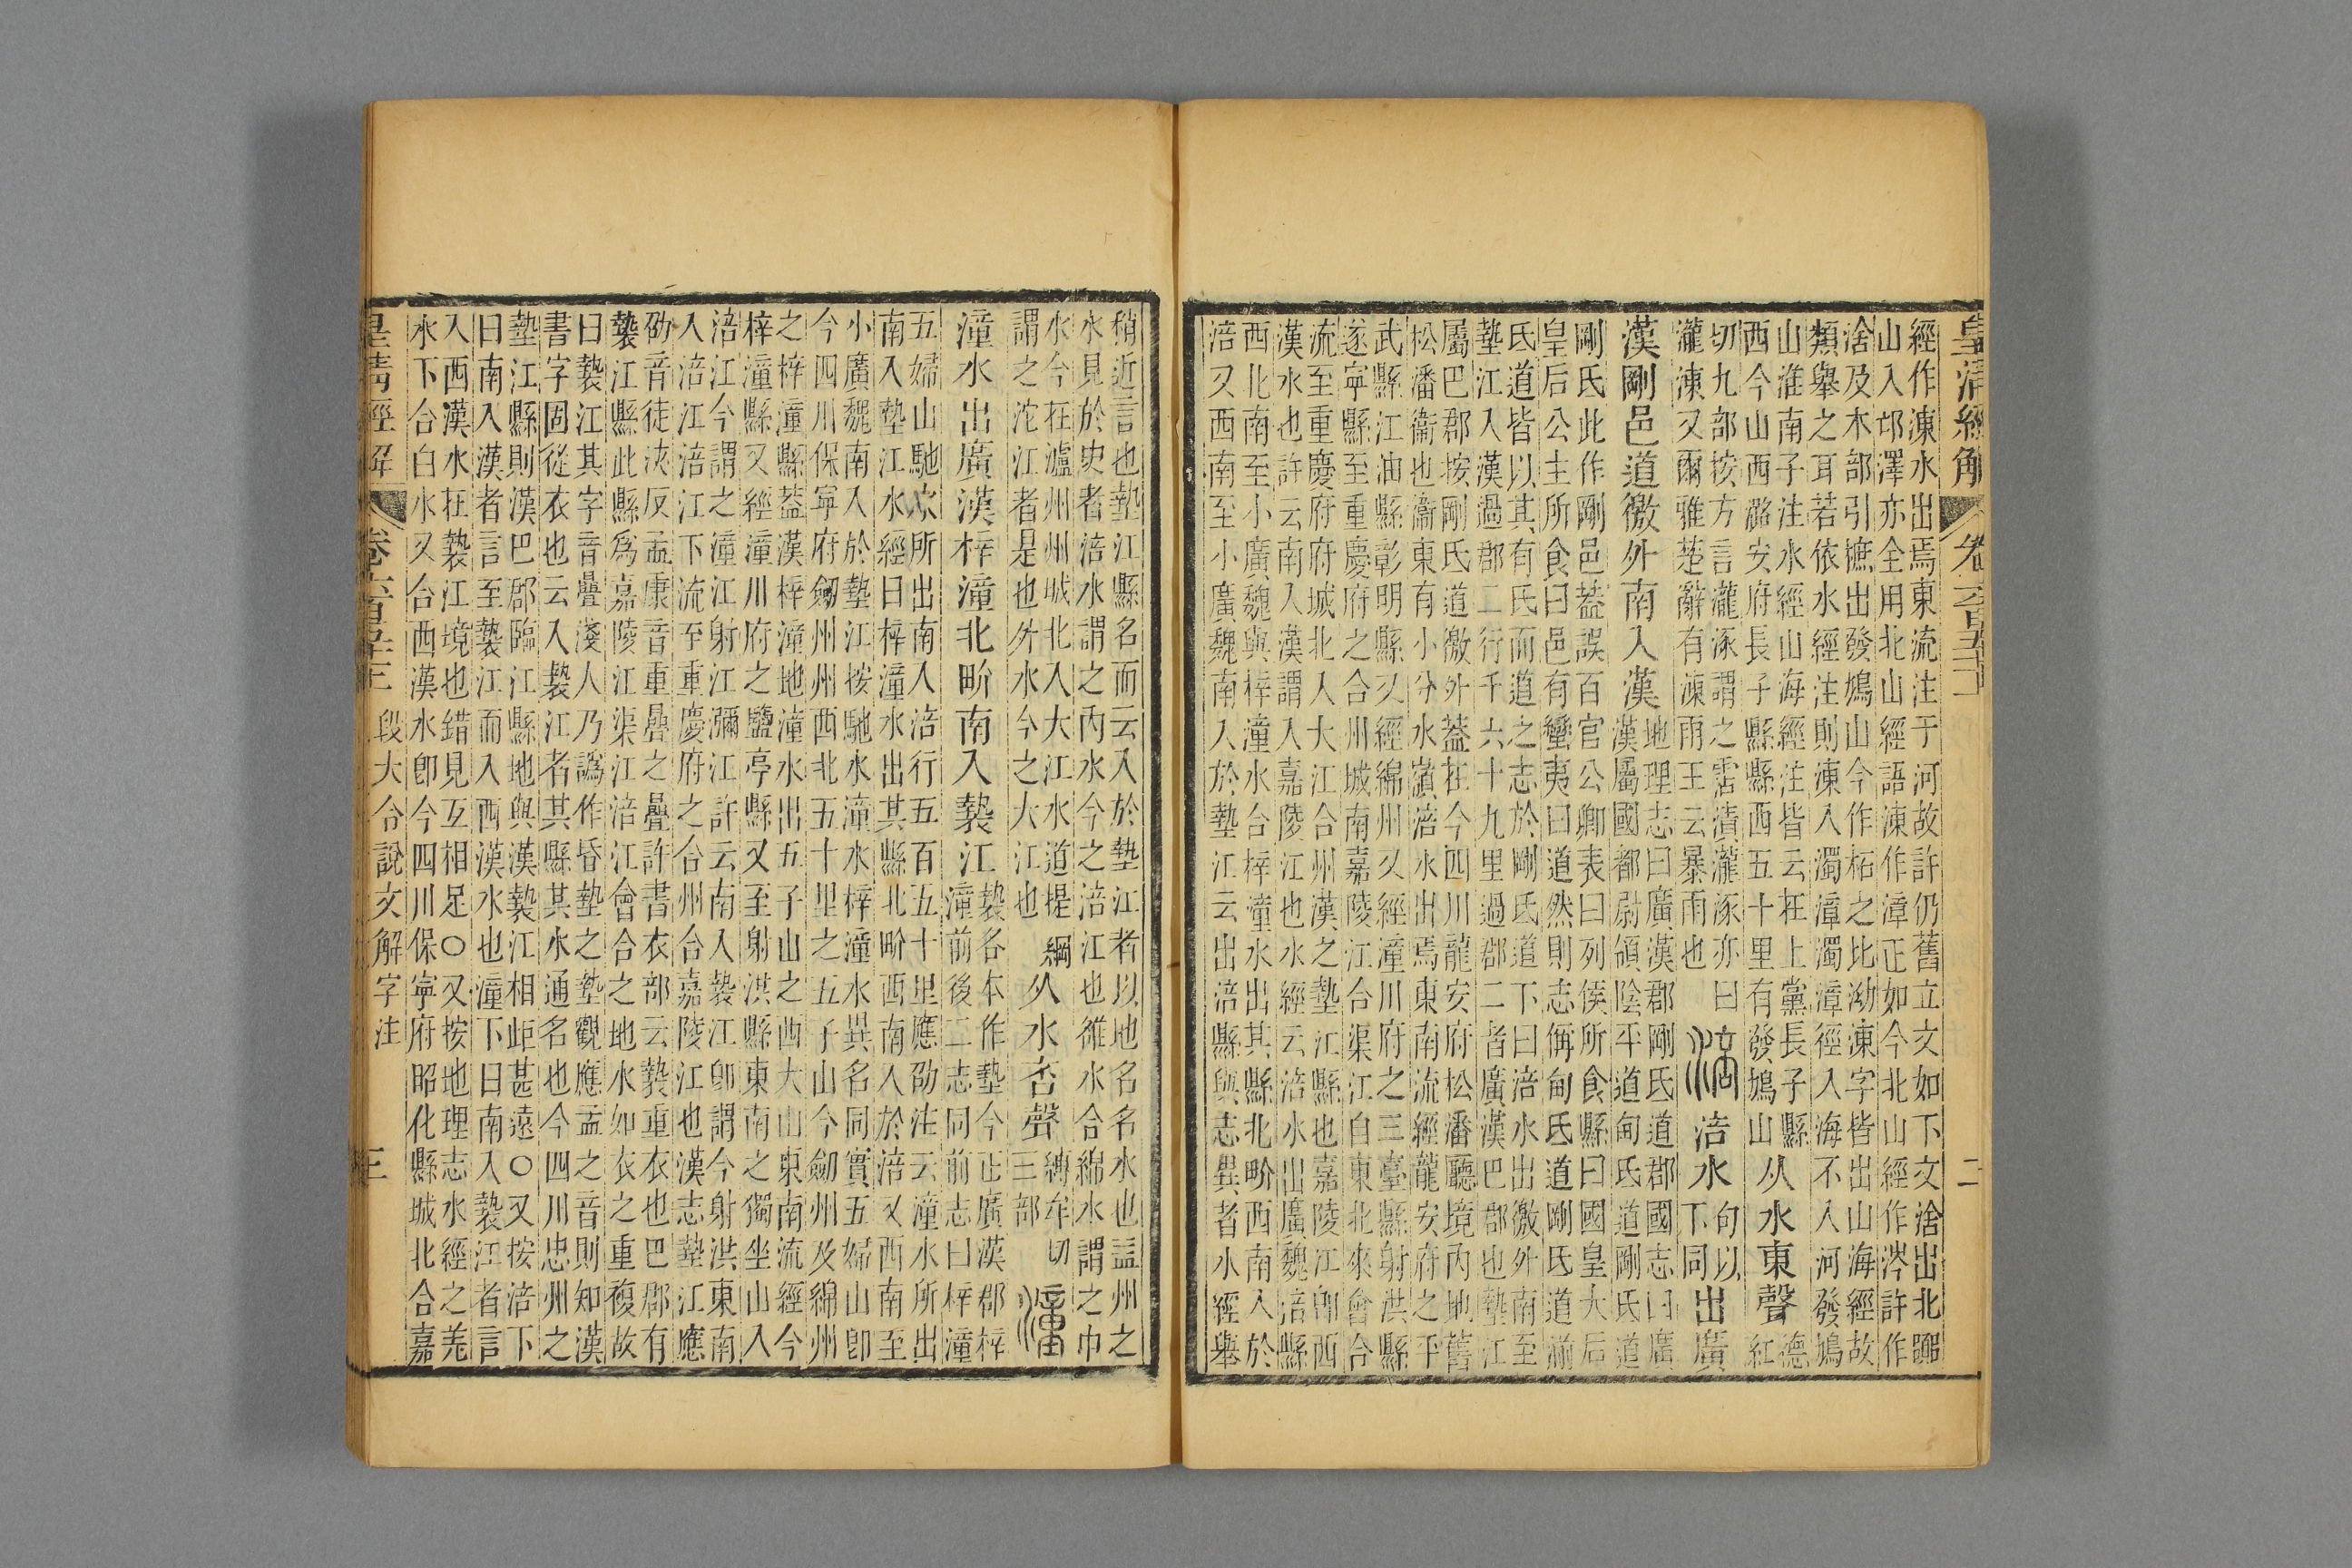 皇清經解 卷六百五十一 二
經作涷水出焉東流注于河故許仍舊立文如下文淦出北嚻
山入邙澤亦全用北山經語涷作漳正如今北山經作涔許作
淦及木部引樜出發鳩山今作柘之比泑涷字皆出山海經故
類舉之耳若依水經注則涷入濁漳濁漳徑入海不入河發鳩
山淮南子注水經山海經注皆云在上黨長子縣
西今山西潞安府長子縣縣西五十里有發鳩山
从水東聲
德紅
切九部按方言瀧涿謂之霑漬瀧涿亦曰
瀧涷又爾雅楚辭有涷雨王云暴雨也
涪水
句以下同
出廣
漢剛邑道徼外南入漢
地理志曰廣漢郡剛氐道郡國志曰廣
漢屬國都尉領陰平道甸氐道剛氐道
剛氐此作剛邑葢誤百官公卿表曰列侯所食縣曰國皇大后
皇后公主所食曰邑有蠻夷曰道然則志偁甸氐道剛氐道湔
氐道皆以其有氐而道之志於剛氐道下曰涪水出徼外南至
墊江入漢過郡二行千六十九里過郡二者廣漢巴郡也墊江
屬巴郡按剛氐道徼外葢在今四川龍安府松潘廳境內地舊
松潘衞也衞東有小分水嶺涪水出焉東南流經龍安府之平
武縣江油縣彰明縣又經綿州又經潼川府之三臺縣射洪縣
遂寧縣至重慶府之合州城南嘉陵江合渠江自東北來會合
流至重慶府府城北入大江合州漢之墊江縣也嘉陵江卽西
漢水也許云南入漢謂入嘉陵江也水經云涪水出廣魏涪縣
西北南至小廣魏與梓潼水合梓潼水出其縣北畍西南入於
涪又西南至小廣魏南入於墊江云出涪縣與志異者水經舉
稍近言也墊江縣名而云入於墊江者以地名名水也益州之
水見於史者涪水謂之內水今之涪江也雒水合綿水謂之中
水今在瀘州州城北入大江水道提綱
謂之沱江者是也外水今之大江也
从水咅聲
縛牟切
三部
潼水出廣漢梓潼北畍南入褺江
褺各本作墊今正廣漢郡梓
潼前後二志同前志曰梓潼
五婦山馳水所出南入涪行五百五十里應劭注云潼水所出
南入墊江水經曰梓潼水出其縣北畍西南入於涪又西南至
小廣魏南入於墊江按馳水潼水梓潼水異名同實五婦山卽
今四川保寧府劒州州西北五十里之五子山今劒州及綿州
之梓潼縣葢漢梓潼地潼水出五子山之西大山東南流經今
梓潼縣又經潼川府之鹽亭縣又至射洪縣東南之獨坐山入
涪江今謂之潼江射江彌江許云南入褺江卽謂今射洪東南
入涪江涪江下流至重慶府之合州合嘉陵江也漢志墊江應
劭音徒浹反孟康音重疊之疊許書衣部云褺重衣也巴郡有
褺江縣此縣爲嘉陵江渠江涪江會合之地水如衣之重複故
曰褺江其字音疊淺人乃譌作昏墊之墊觀應孟之音則知漢
書字固從衣也云入褺江者其縣其水通名也今四川忠州之
墊江縣則漢巴郡臨江縣地與漢褺江相距甚遠〇又按涪下
曰南入漢者言至褺江而入西漢水也潼下曰南入褺江者言
入西漢水在褺江境也錯見互相足〇又按地理志水經之羌
水下合白水又合西漢水卽今四川保寧府昭化縣城北合嘉
皇淸經解 卷六百五十三 段大令說文解字注 三